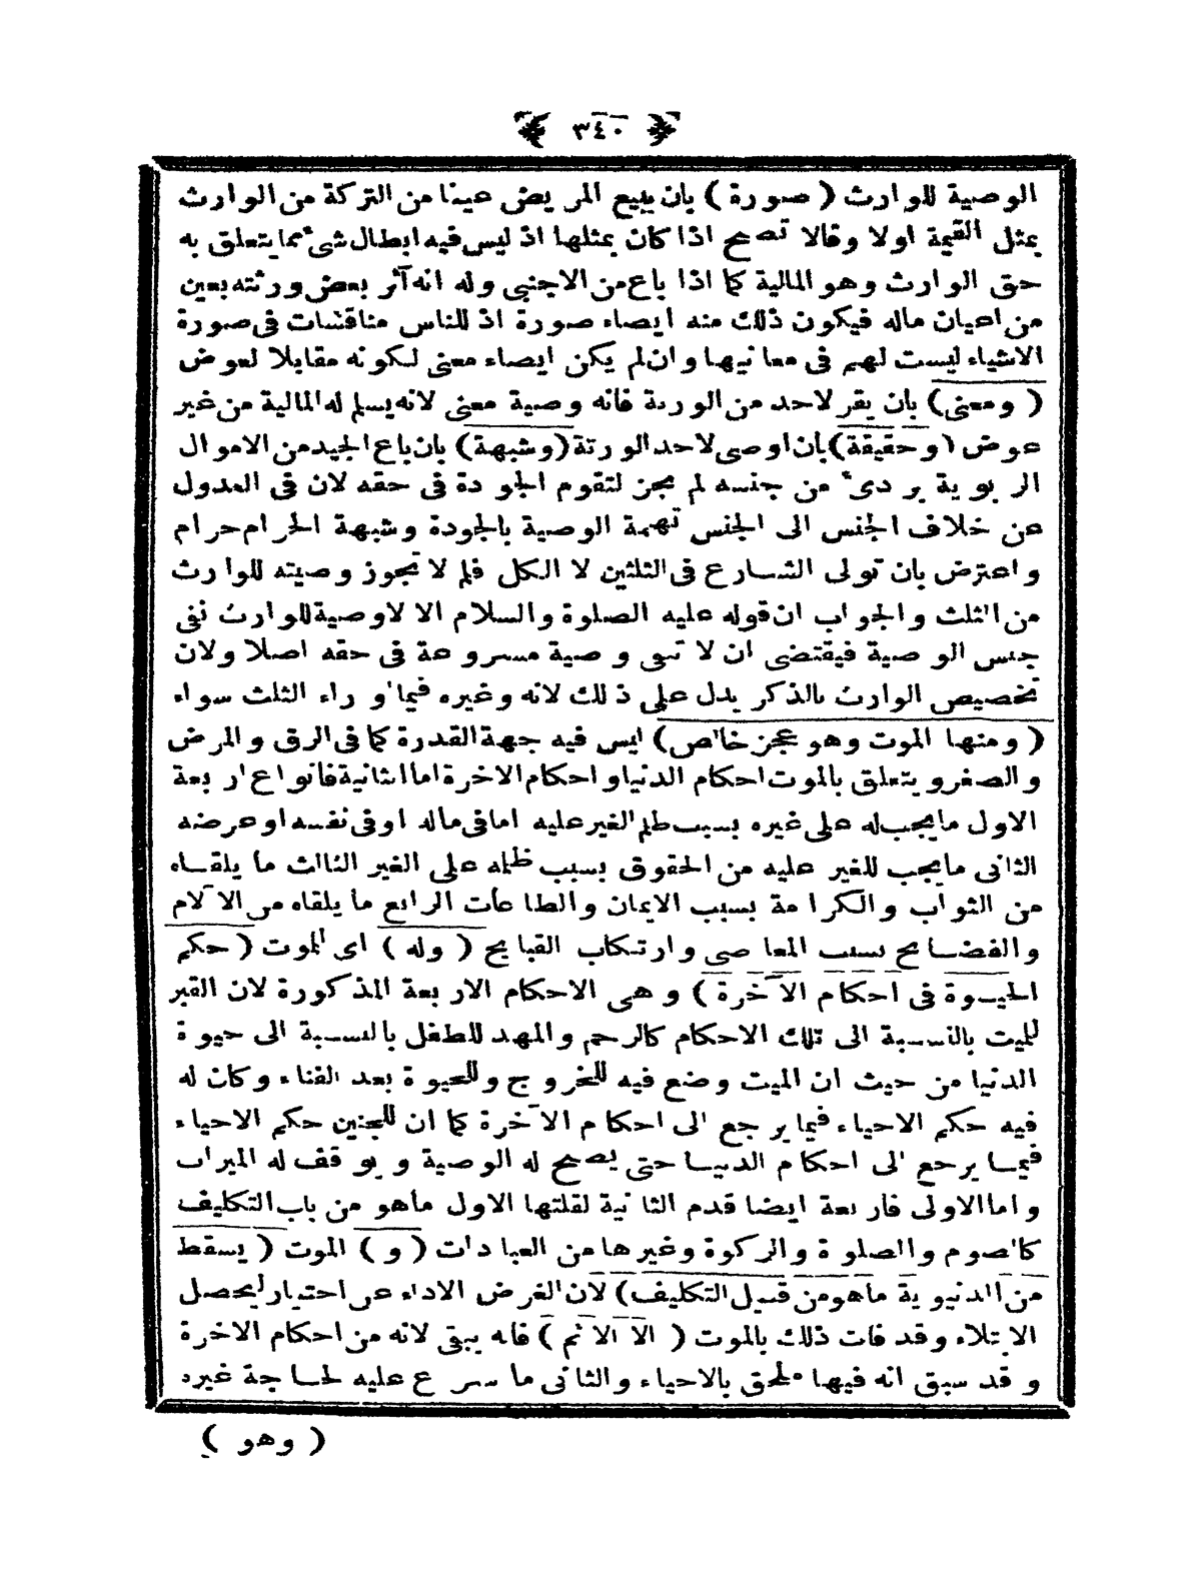 ﴿ ٣٤٠ ﴾
الوصية للوارث ( صورة ) بان يبيع المريض عينا من التركة من الوارث
بمثل القيمة اولا وقالا تصح اذا كان بمثلها اذ ليس فيه ابطال شئ مما يتعلق به
حق الوارث وهو المالية كما اذا باع من الاجنبى وله انه آثر بعض ورثته بعين
من اعيان ماله فيكون ذلك منه ايصاء صورة اذ للناس مناقشات فى صورة
الاشياء ليست لهم فى معانيها وان لم يكن ايصاء معنى لكونه مقابلا لعوض
( ومعنى ) بان يقر لاحد من الورثة فانه وصية معنى لانه يسلم له المالية من غير
عوض ( وحقيقة ) بان اوصى لاحد الورثة ( وشبهة ) بان باع الجيد من الاموال
الربوية بردئ من جنسه لم يجز لتقوم الجودة فى حقه لان فى العدول
عن خلاف الجنس الى الجنس تهمة الوصية بالجودة وشبهة الحرام حرام
واعترض بان تولى الشارع فى الثلثين لا الكل فلم لا تجوز وصيته للوارث
من الثلث والجواب ان قوله عليه الصلوة والسلام الا لا وصية للوارث نفى
جنس الوصية فيقتضى ان لا تبقى وصية مشروعة فى حقه اصلا ولان
تخصيص الوارث بالذكر يدل على ذلك لانه وغيره فيما وراء الثلث سواء
( ومنها الموت وهو عجز خالص ) ليس فيه جهة القدرة كما فى الرق والمرض
والصغر ويتعلق بالموت احكام الدنيا واحكام الاخرة اما الثانية فانواع اربعة
الاول ما يجب له على غيره بسبب ظلم الغير عليه اما فى ماله او فى نفسه او عرضه
الثانى ما يجب للغير عليه من الحقوق بسبب ظلمه على الغير الثالث ما يلقاه
من الثواب والكرامة بسبب الايمان والطاعات الرابع ما يلقاه من الآلام
والفضايح بسبب المعاصى وارتكاب القبايح ( وله ) اى للموت ( حكم
الحيوة فى احكام الآخرة ) وهى الاحكام الاربعة المذكورة لان القبر
للميت بالنسبة الى تلك الاحكام كالرحم والمهد للطفل بالنسبة الى حيوة
الدنيا من حيث ان الميت وضع فيه للخروج وللحيوة بعد الفناء وكان له
فيه حكم الاحياء فيما يرجع الى احكام الآخرة كما ان للجنين حكم الاحياء
فيما يرجع الى احكام الدنيا حتى يصح له الوصية ويوقف له الميراث
واما الاولى فاربعة ايضا قدم الثانية لقلتها الاول ما هو من باب التكليف
كالصوم والصلوة والزكوة وغيرها من العبادات ( و ) الموت ( يسقط
من الدنيوية ما هو من قبيل التكليف ) لان الغرض الاداء عن اختيار ليحصل
الابتلاء وقد فات ذلك بالموت ( الا الاثم ) فانه يبقى لانه من احكام الاخرة
وقد سبق انه فيها ملحق بالاحياء والثانى ما شرع عليه لحاجة غيره
( وهو )